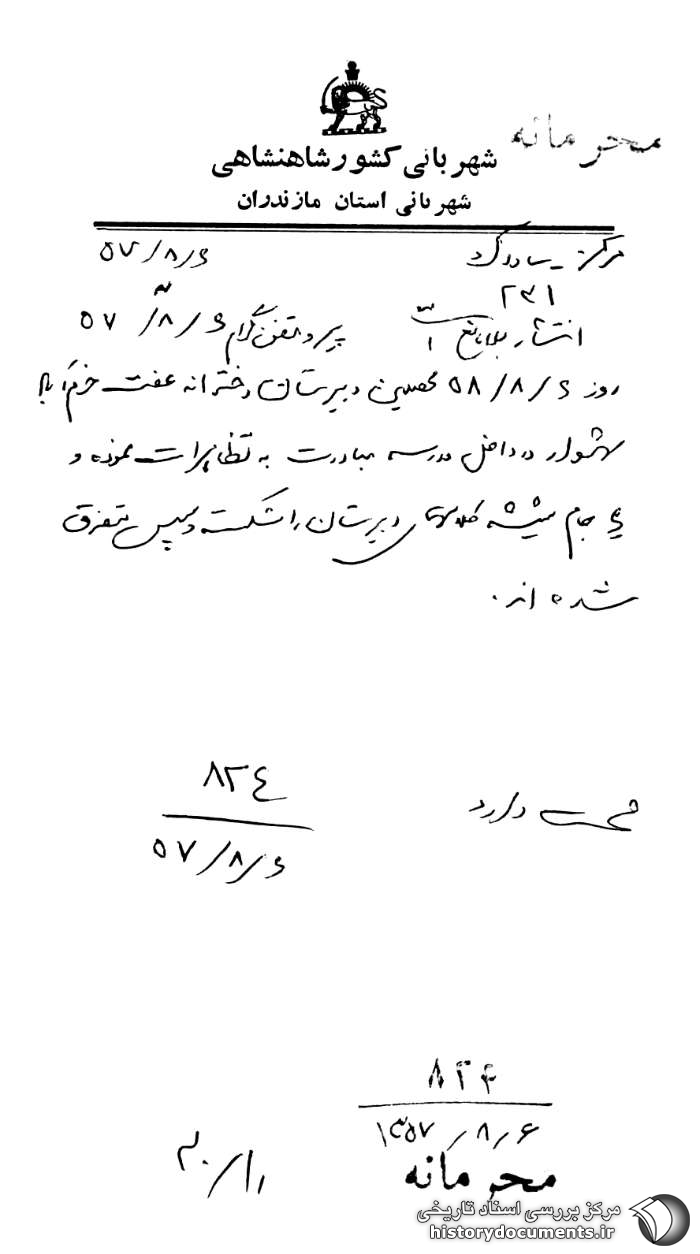 محرمانه
شهربانی کشور شاهنشاهی
شهربانی استان مازندران
مرکز - ساواک
۵۷/۸/۶
۲۳۱
پیرو تلفنگرام ۵۷/۸/۶
روز ۵۸/۸/۶ محصلین دبیرستان دخترانه عفت خرم آباد
شهسوار در داخل مدرسه مبادرت به تظاهرات نموده و
۶ جام شیشه کلاسهای دبیرستان را شکسته و سپس متفرق
شده اند.
۸۲۴
۵۷/۸/۶
دارد
۸۲۴
۱۳۵۷/۸/۶
محرمانه
مرکز بررسی اسناد تاریخی
historydocuments.ir